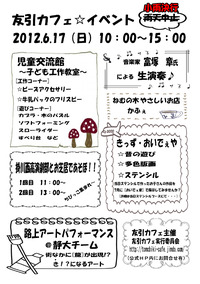 友引カフェ☆イベント
小雨決行
雨天中止
2012.6.17（日）10：00～15：00
児童交流館
～子ども工作教室～
【工作コーナー】
☆ビーズアクセサリー
☆牛乳パックのフリスビー
【遊びコーナー】
カプラ・木のパズル
ソフトフォーミング
スローライダー
すべり台　など
音楽家　富塚　章兵
による　生演奏♪
ねむの木やさしいお店
かふぇ
掛川西高演劇部とお芝居であそぼ！！
1回目　11：00～
2回目　13：00～
きっず・おいでぇや
☆昔の遊び
☆多色版画
☆ステンシル
路上アートパフォーマンス
＠静大チーム
街なかに「龍」が出現！？
さ！？になるアート
友引カフェ 主催
友引カフェ実行委員会